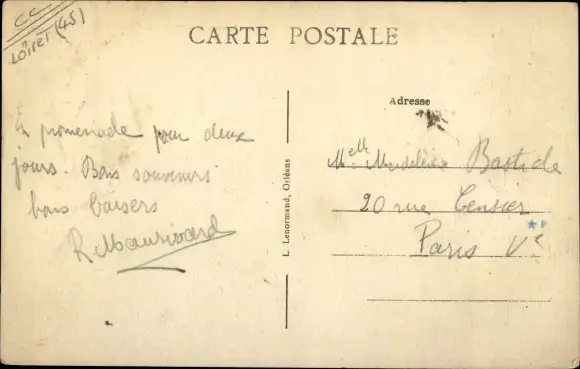 CC
LOIRET (45)
CARTE POSTALE
Adresse
En promenade pour deux
jours. Bons souvenirs
bons baisers
L. Lenormand, Orléans
Melle Madeleine Bastide
20 rue Censier
Paris Ve